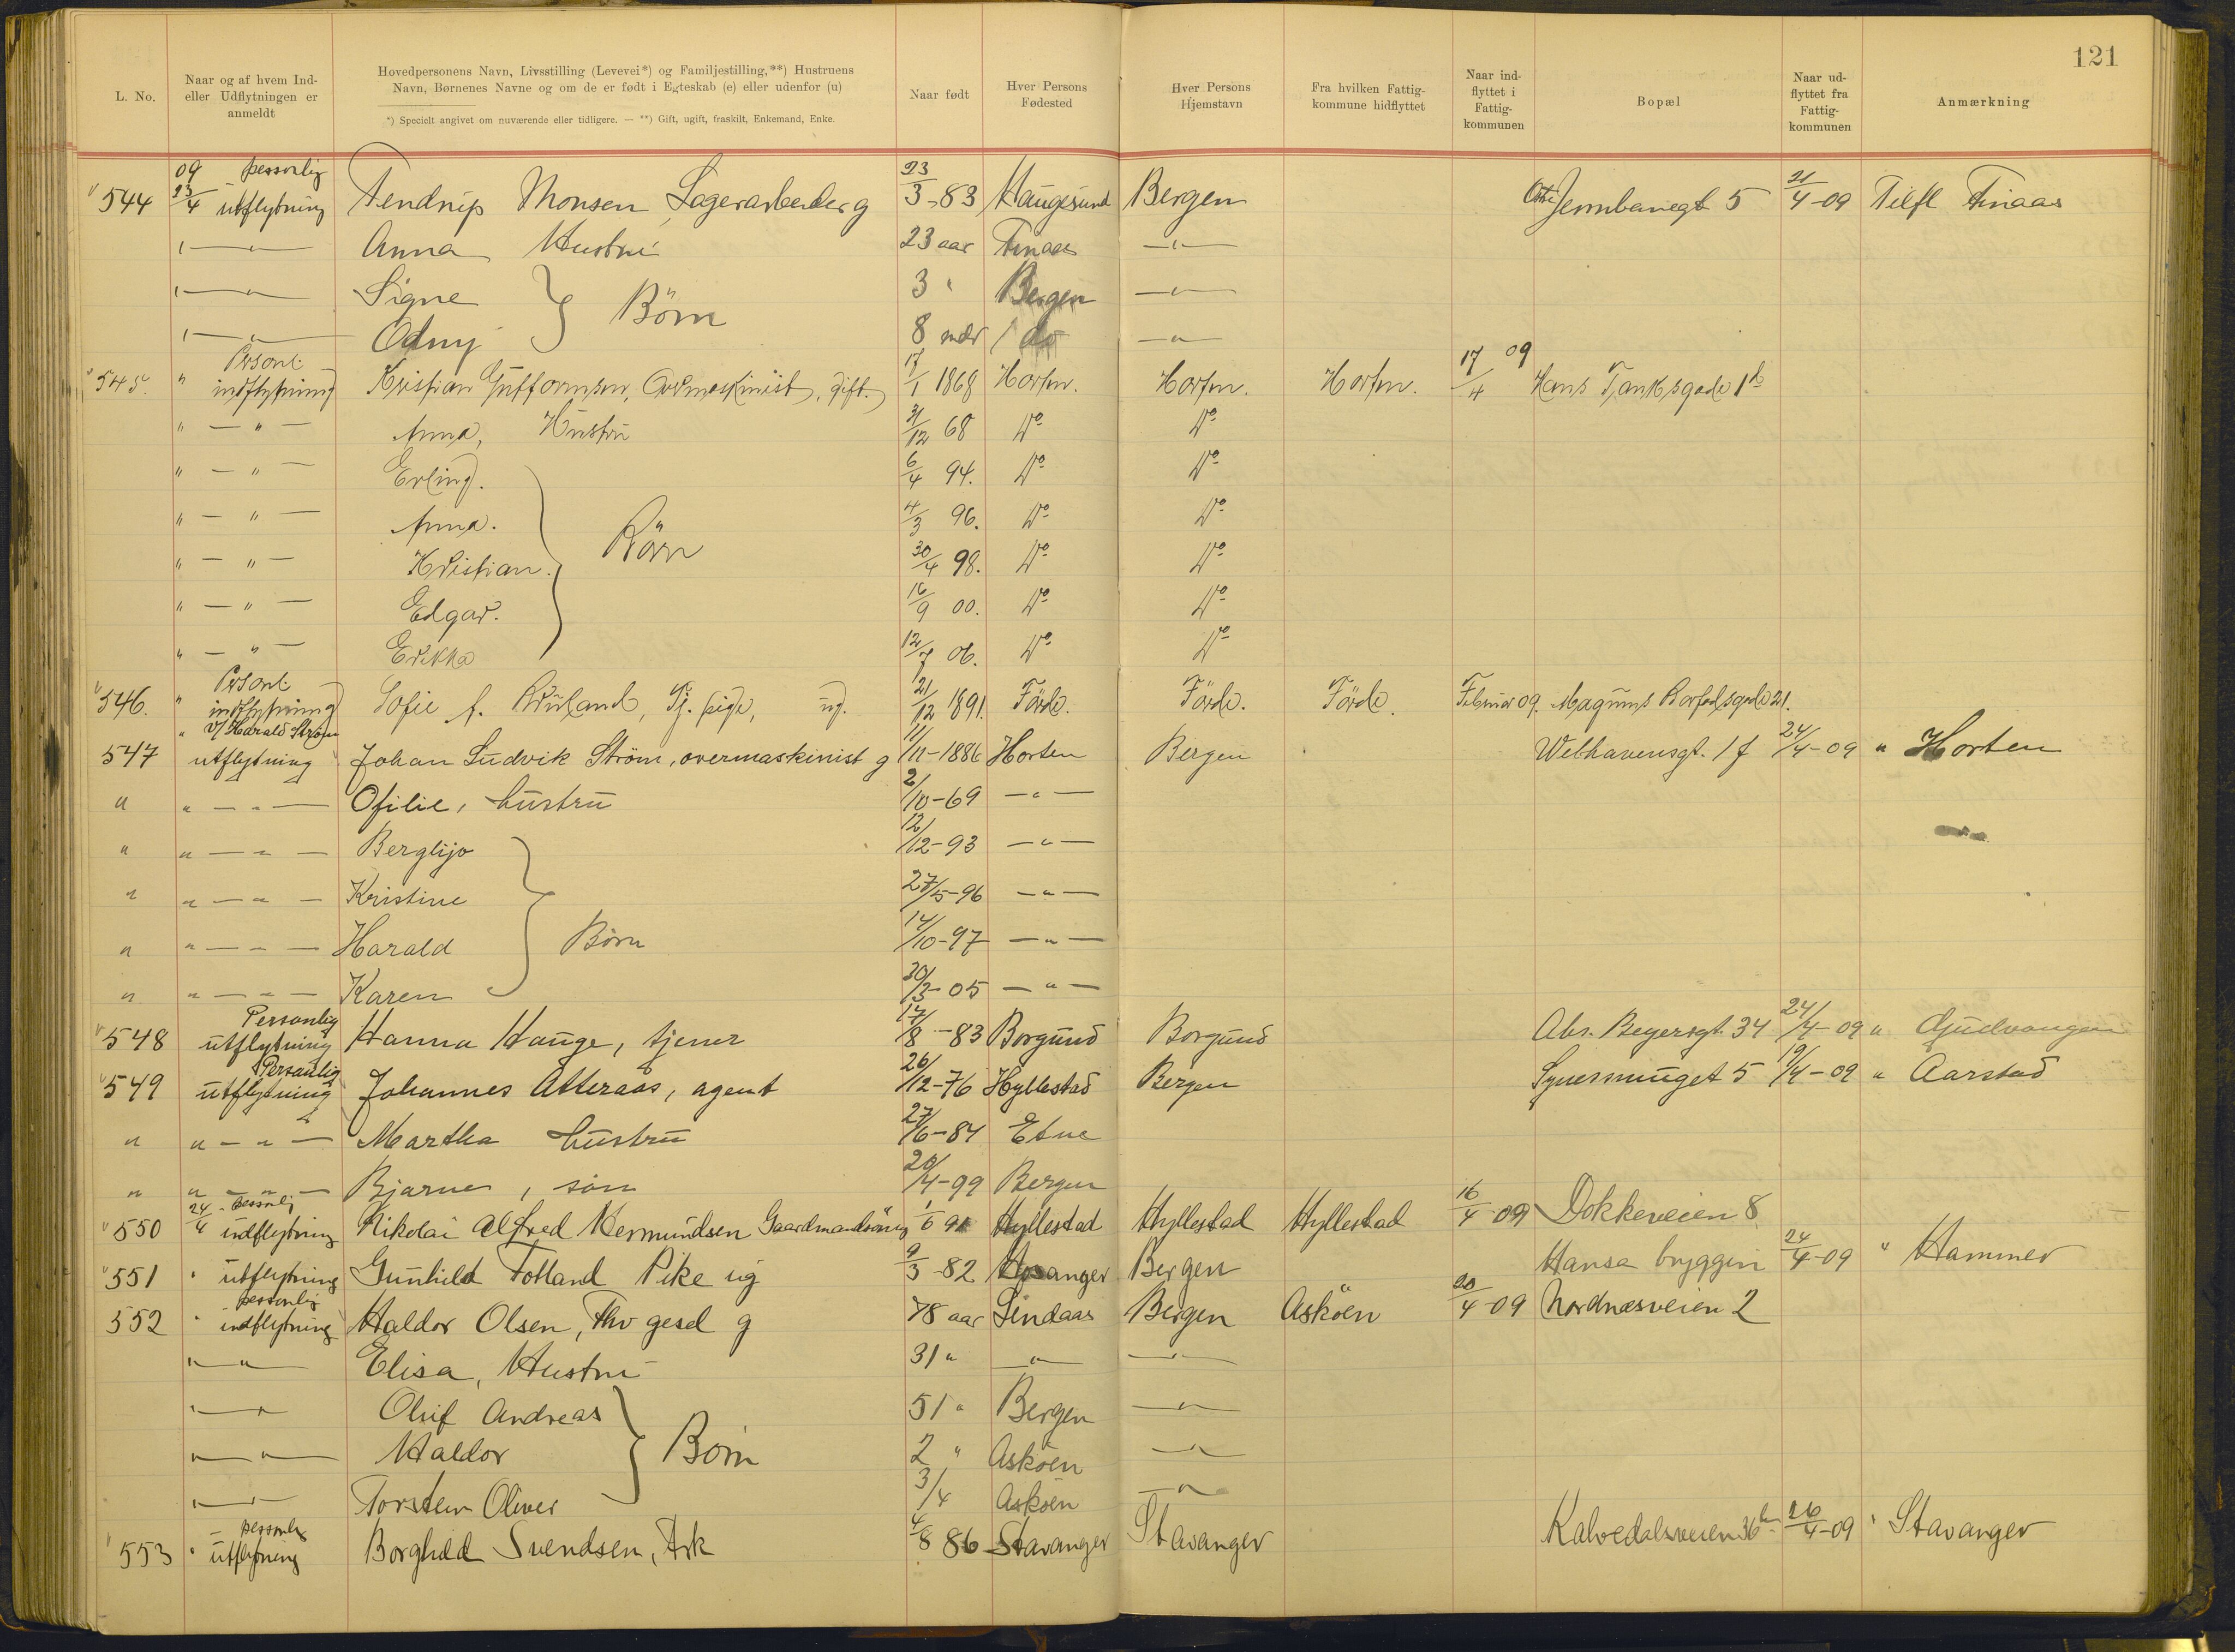 121
L. No.
Naar og af hvem Ind-
eller Udflytningen er
anmeldt
Hovedpersonens Navn, Livsstilling (Levevei*) og Familjestilling,**) Hustruens
Navn, Børnenes Navne og om de er født i Egteskab (e) eller udenfor (u)
*) Specielt angivet om nuværende eller tidligere. — **) Gift, ugift, fraskilt, Enkemand, Enke.
Naar født
Hver Persons
Fødested
Hver Persons
Hjemstavn
Fra hvilken Fattig-
kommune hidflyttet
Naar ind-
flyttet i
Fattig-
kommunen
Bopæl
Naar ud-
flyttet fra
Fattig-
kommunen
Anmærkning
09 personlig
544 23/4 utflytning Tendrup Monsen Lagerarbeider g 23/3-83 Haugesund Bergen Jernbanegt 5 21/4-09 Tilfl Finaas
" — " — Anna Hustru 23 aar Finaas — " —
" — " — Signe } Börn 3 " Bergen — " —
" — " — Odny 8 mdr do — " —
Personl.
545. " indflytning Kristian Guttormsen, Ovrmaskinist, gift. 17/1 1868 Horten. Horten. Horten. 17/4 09 Hans Tanksgade 1b
" — " — Anna, Hustru 31/12 68 Do Do
" — " — Erling. 6/4 94. Do Do
" — " — Anna. 4/3 96. Do Do
" — " — Kristian. } Börn 30/4 98. Do Do
" — " — Edgar. 16/9 00. Do Do
" — " — Erikka 12/7 06. Do Do
Personl.
546. " indflytning Sofie f. Bruland, Tj. pige, ug. 21/12 1891. Förde. Förde. Förde. Februar 09. Magnus Barfodsgade 21.
" v/ Harald Strøm
547 utflytning Johan Ludvik Strøm, overmaskinist g 11/11-1886 Horten Bergen Welhavensgt. 1 f 24/4-09 " Horten
" " — " — Ofilie, hustru 2/10-69 — " —
" " — " — Berglijo 12/12-93 — " —
" " — " — Kristine 27/5-96 — " —
" " — " — Harald } Børn 14/10-97 — " —
" " — " — Karen 30/3-05 — " —
Personlig
548 utflytning Hanna Hauge, tjener 17/8-83 Borgund Borgund Abs. Beyersgt. 34 24/4-09 " Gudvangen
Personlig
549 utflytning Johannes Atteraas, agent 26/12-76 Hyllestad Bergen Synessmuget 5 19/4-09 " Aarstad
" " — " — Martha hustru 27/6-84 Etne
" " — " — Bjarne, søn 20/4-99 Bergen
24/4 " personlig
550 indflytning Nikolai Alfred Hermundsen Gaardmandsøn ug 1/6 91 Hyllestad Hyllestad Hyllestad 16/4-09 Dokkeveien 8
551 " utflytning Gunhild Totland Pike ug 9/3-82 Hosanger Bergen Hansa bryggeri 24/4-09 " Hammer
personlig
552 " indflytning Haldor Olsen, Thv gesel g 78 aar Lindaas Bergen Asköen 20/4-09 Nordnesveien 2
" — " — Elisa, Hustru 31 " — " — — " —
" — " — Oluf Andreas 51 " Bergen — " —
" — " — Haldor } Börn 2 " Asköen — " —
" — " — Torstein Oliver 3/4 Asköen — " —
personlig
553 " utflytning Borghild Svendsen, Frk 4/8 86 Stavanger Stavanger Kalvedalsveien 36 26/4-09 " Stavanger